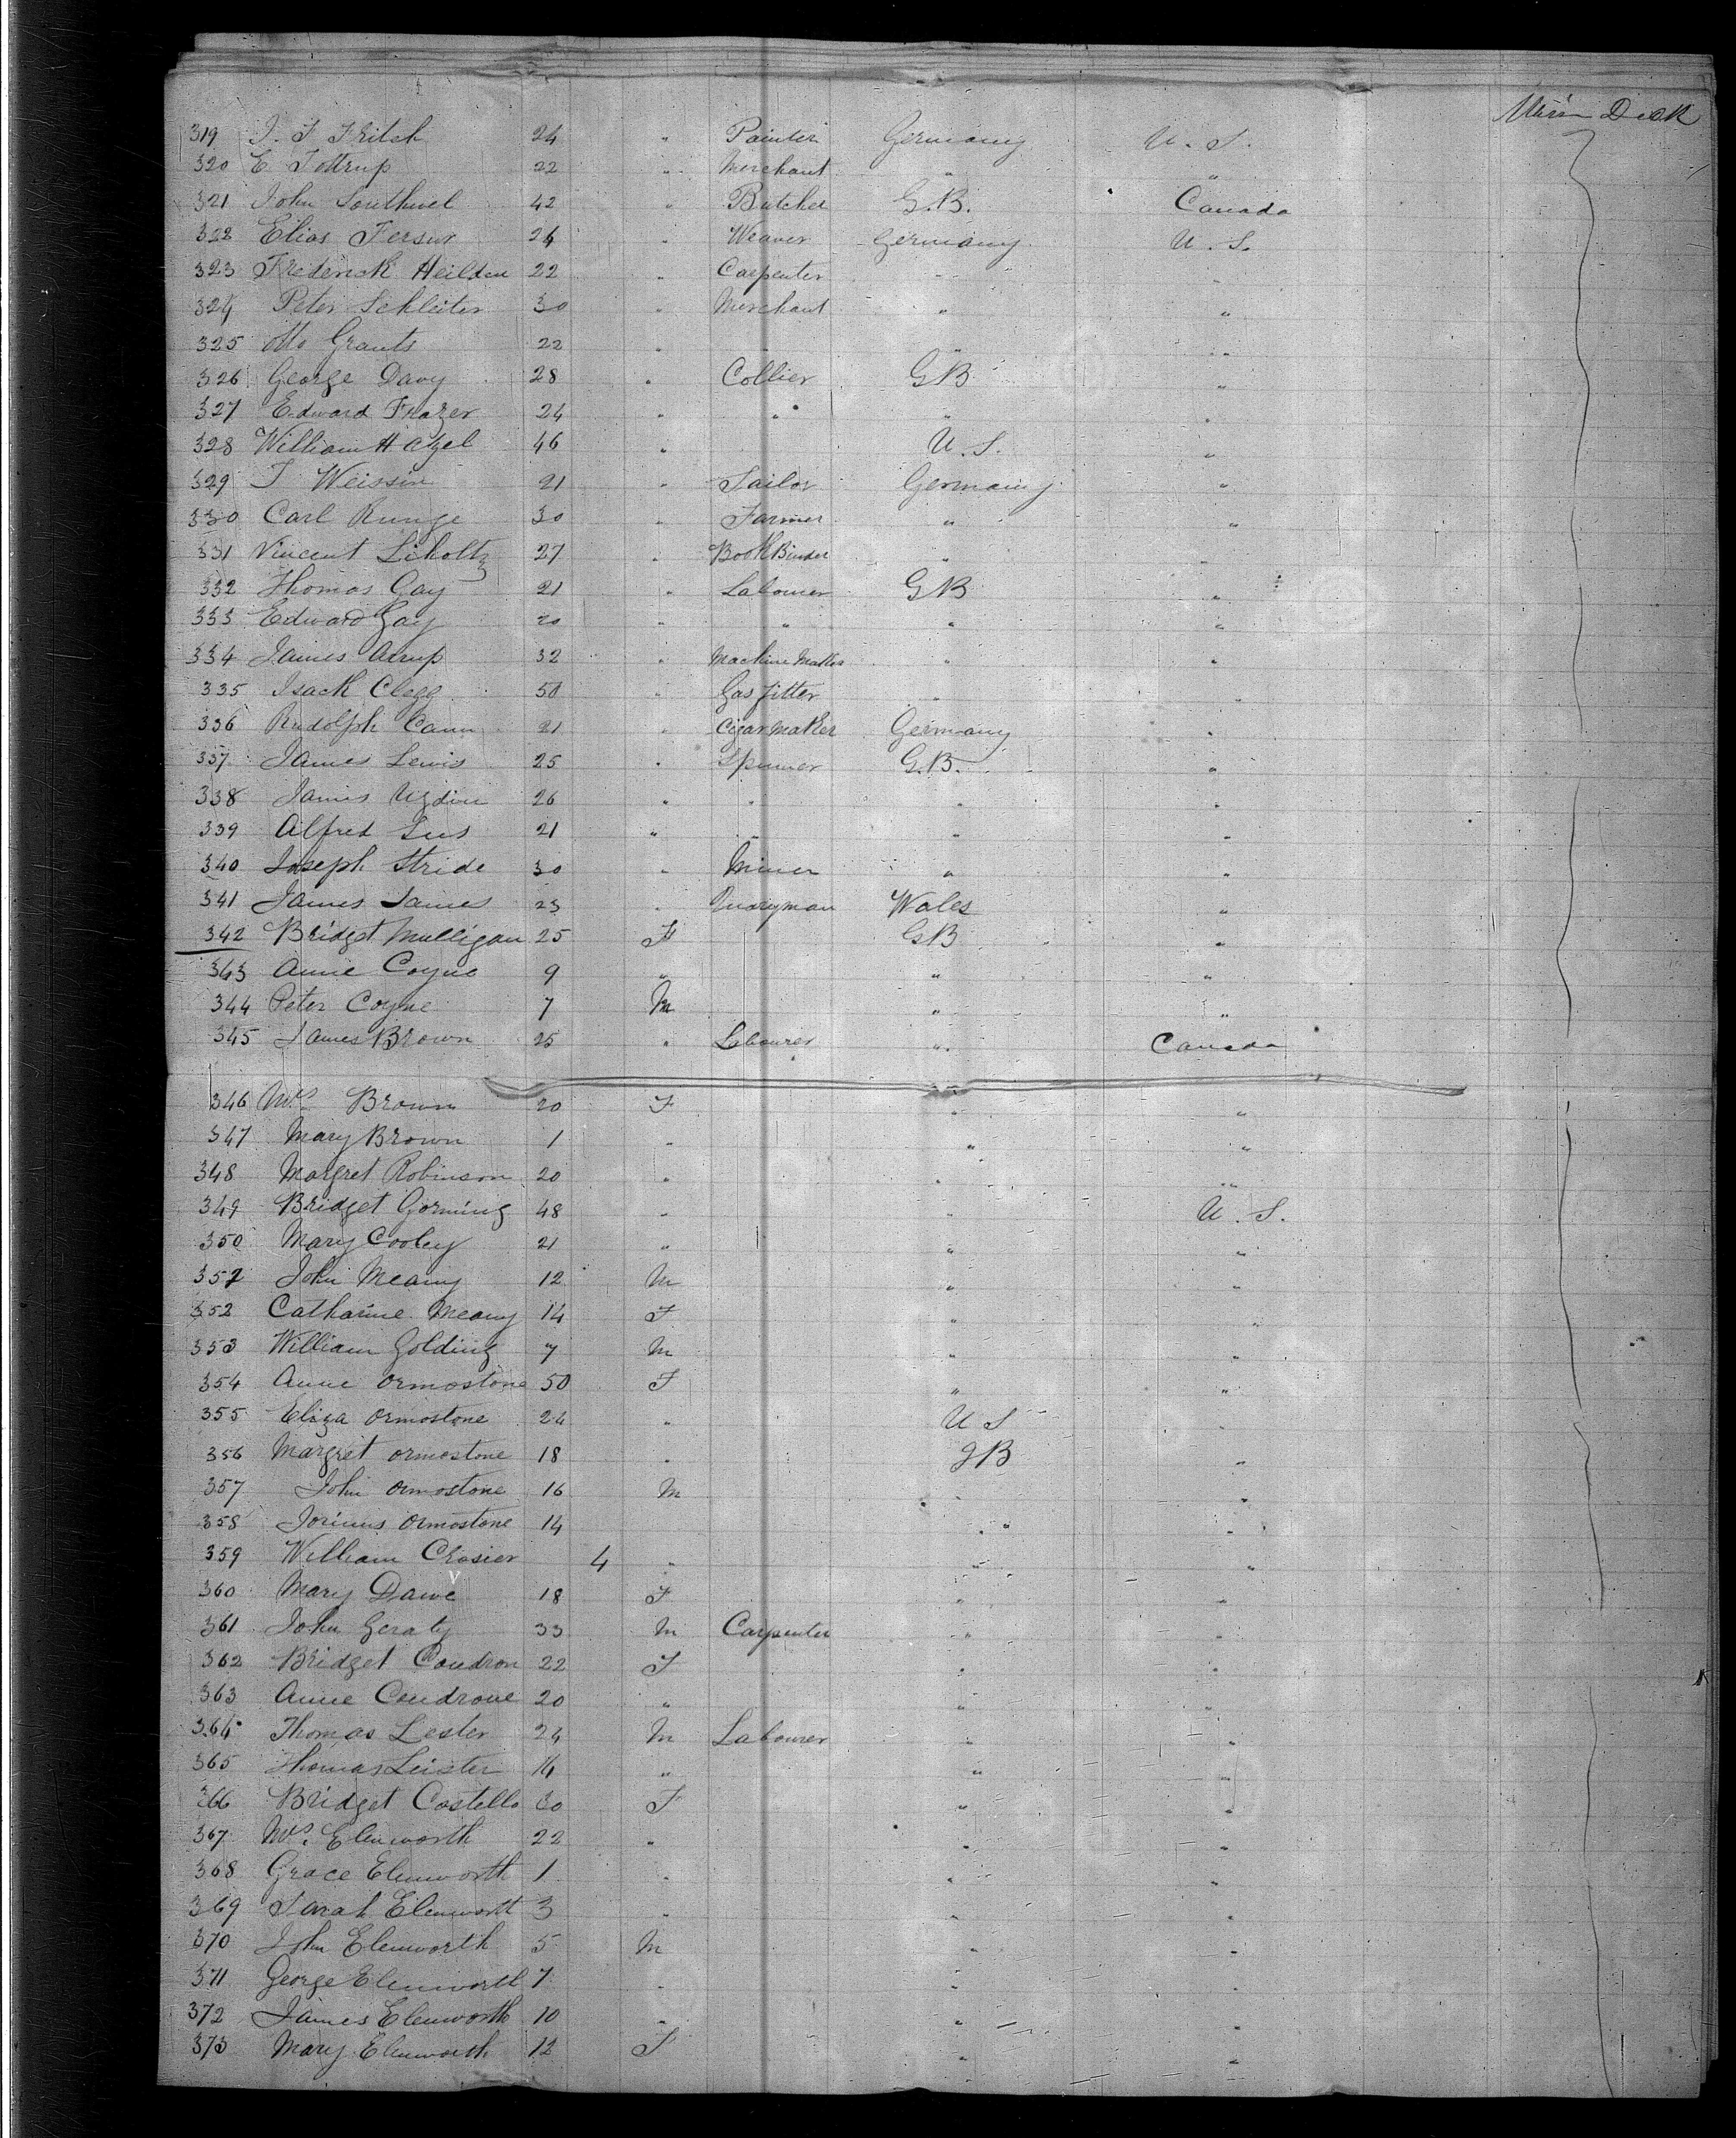 Main Deck
319 J. F. Fritch 24 " Painter Germany U. S.
320 E Tottrup 22 " Merchant " "
321 John Southwel 42 " Butcher G.B. Canada
322 Elias 24 " Weaver Germany U. S.
323 Frederick Heilden 22 " Carpenter " "
324 Peter Schleiter 30 " Merchant " "
325 Otto Grants 22 " " " "
326 George Davy 28 " Collier GB "
327 Edward Frazer 24 " " " "
328 William Hazel 46 " U. S. "
329 Weissin 21 " Tailor Germany "
330 Carl Runge 30 " Farmer " "
331 Vincent Liholtz 27 " Book Binder " "
332 Thomas Gay 21 " Labourer GB "
333 Edward Gay 20 " " " "
334 James Arrup 32 " Machine Maker " "
335 Isack Clegg 50 " Gas fitter " "
336 Rudolph Cann 21 " Cigar Maker Germany "
337 James Lewis 25 " Spinner G.B. "
338 James 26 " " " "
339 Alfred Lees 21 " " " "
340 Joseph Stride 30 " Miner " "
341 James James 23 " Quaryman Wales "
342 Bridget Mulligan 25 F GB "
343 Annie Coyne 9 " " "
344 Peter Coyne 7 M " "
345 James Brown 25 " Labourer " Canada
346 Mrs Brown 20 F " "
347 Mary Brown 1 " " "
348 Margret Robinson 20 " " "
349 Bridget Gorming 48 " " U. S.
350 Mary Cooley 21 " " "
351 John Meany 12 M " "
352 Catharine Meany 14 F " "
353 William Golding 7 M " "
354 Anne Ormostone 50 F " "
355 Eliza Ormostone 24 " U S "
356 Margret Ormostone 18 " GB "
357 John Ormostone 16 M " "
358 Ormostone 14 " "
359 William Crosier 4 " " "
360 Mary Dawe 18 F " "
361 John Geraty 33 M Carpenter " "
362 Bridget Condron 22 F " "
363 Anne Condrone 20 " " "
364 Thomas Lester 24 M Labourer " "
365 Thomas Leister 14 " " "
366 Bridget Costello 30 F " "
367 Mrs. Elenworth 22 " " "
368 Grace Elenworth 1 " " "
369 Sarah Elenworth 3 " " "
370 John Elenworth 5 M " "
371 George Elenworth 7 " " "
372 James Elenworth 10 " " "
373 Mary Elenworth 12 F " "